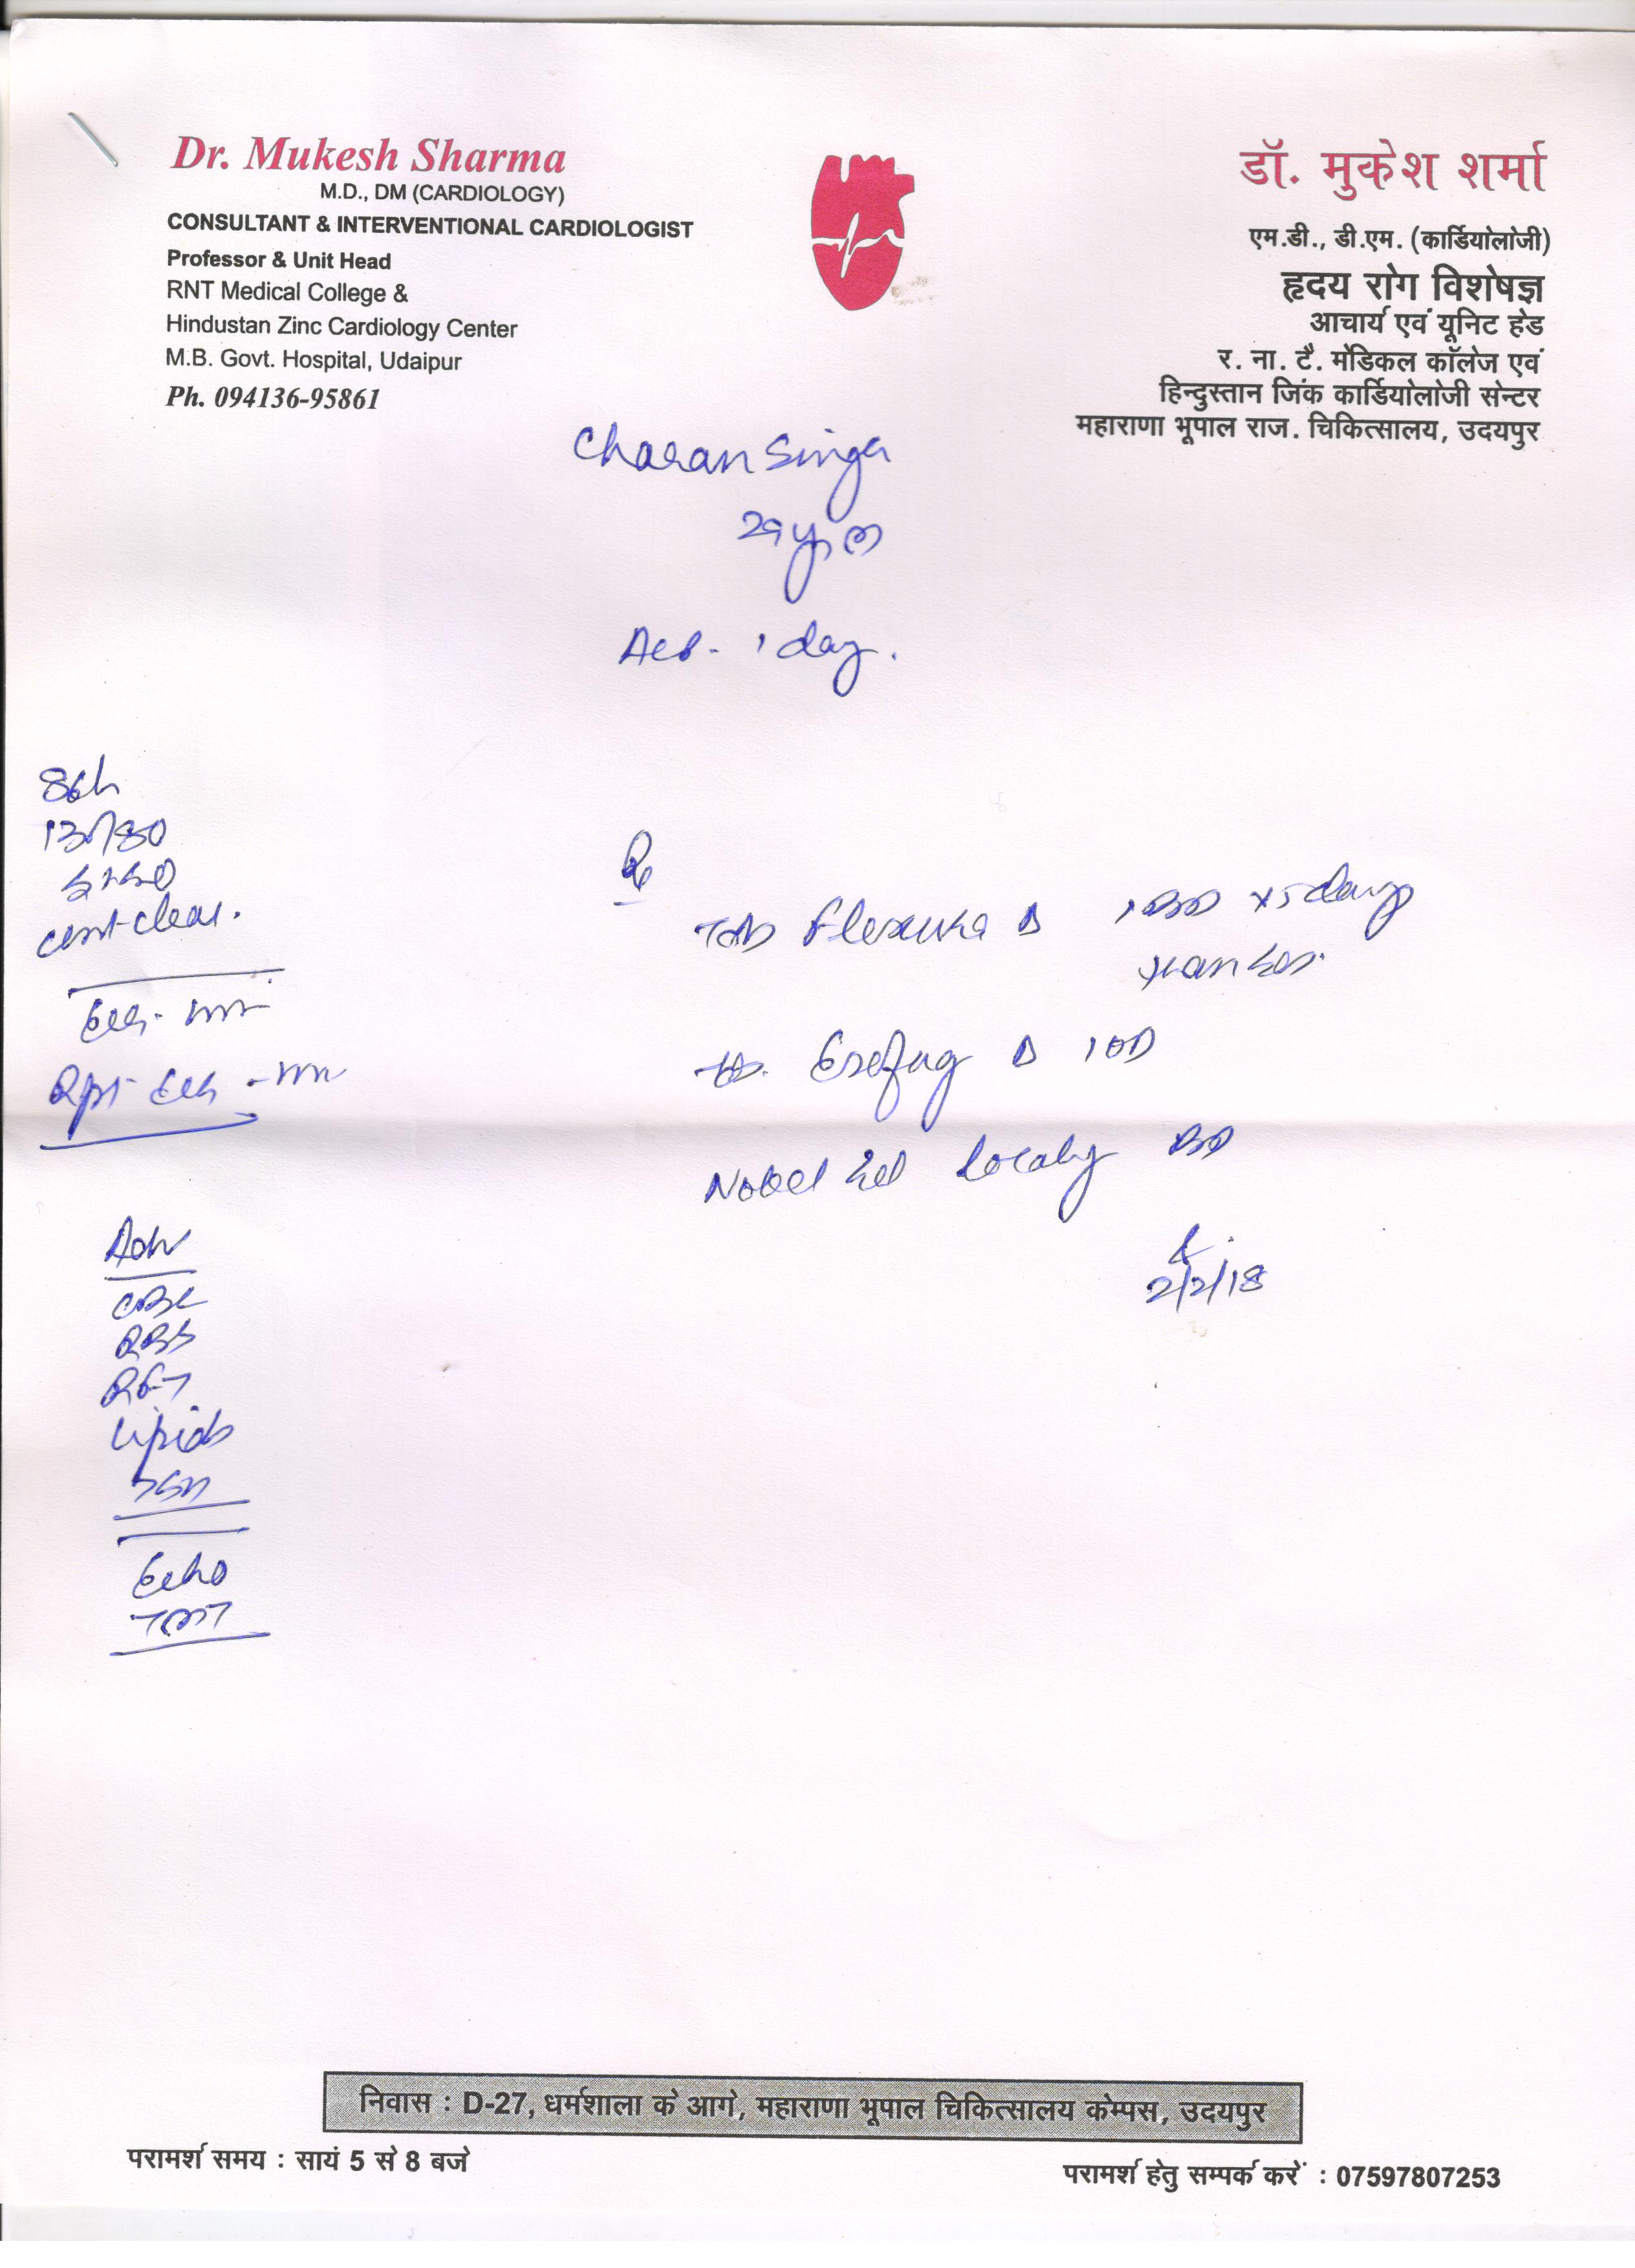 Dr. Mukesh Sharma
M.D., DM (CARDIOLOGY)
CONSULTANT & INTERVENTIONAL CARDIOLOGIST
Professor & Unit Head
RNT Medical College &
Hindustan Zinc Cardiology Center
M.B. Govt. Hospital, Udaipur
Ph. 094136-95861
डॉ. मुकेश शर्मा
एम.डी., डी.एम. (कार्डियोलोजी)
हृदय रोग विशेषज्ञ
आचार्य एवं यूनिट हेड
र. ना. टै. मेडिकल कॉलेज एवं
हिन्दुस्तान जिंक कार्डियोलोजी सेन्टर
महाराणा भूपाल राज. चिकित्सालय, उदयपुर
Charan Singh
1 day.
130/80
chest clear.
Rx
Tab x 5 days
1 OD
locally BD
2/2/18
Adv
CBC
RBS
RFT
Lipids
TSH
Echo
TMT
निवास : D-27, धर्मशाला के आगे, महाराणा भूपाल चिकित्सालय केम्पस, उदयपुर
परामर्श समय : सायं 5 से 8 बजे
परामर्श हेतु सम्पर्क करें : 07597807253